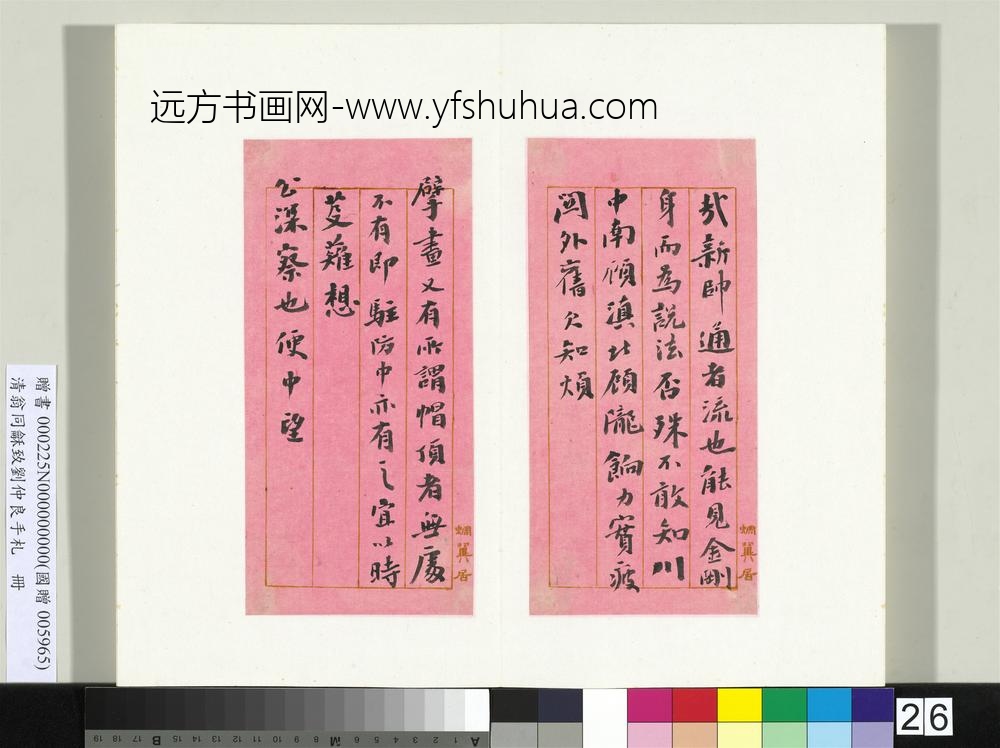 远方书画网-www.yfshuhua.com
哉新帥通者流也能見金剛
身而為說法否殊不敢知川
中南顧滇北顧隴餉力實疲
閫外舊欠知煩
擘畫又有所謂帽頂者無處
不有即駐防中亦有之宜以時
芟薙想
公深察也便中望
贈書 000225N000000000(國贈 005965)
清翁同龢致劉仲良手札 冊
26